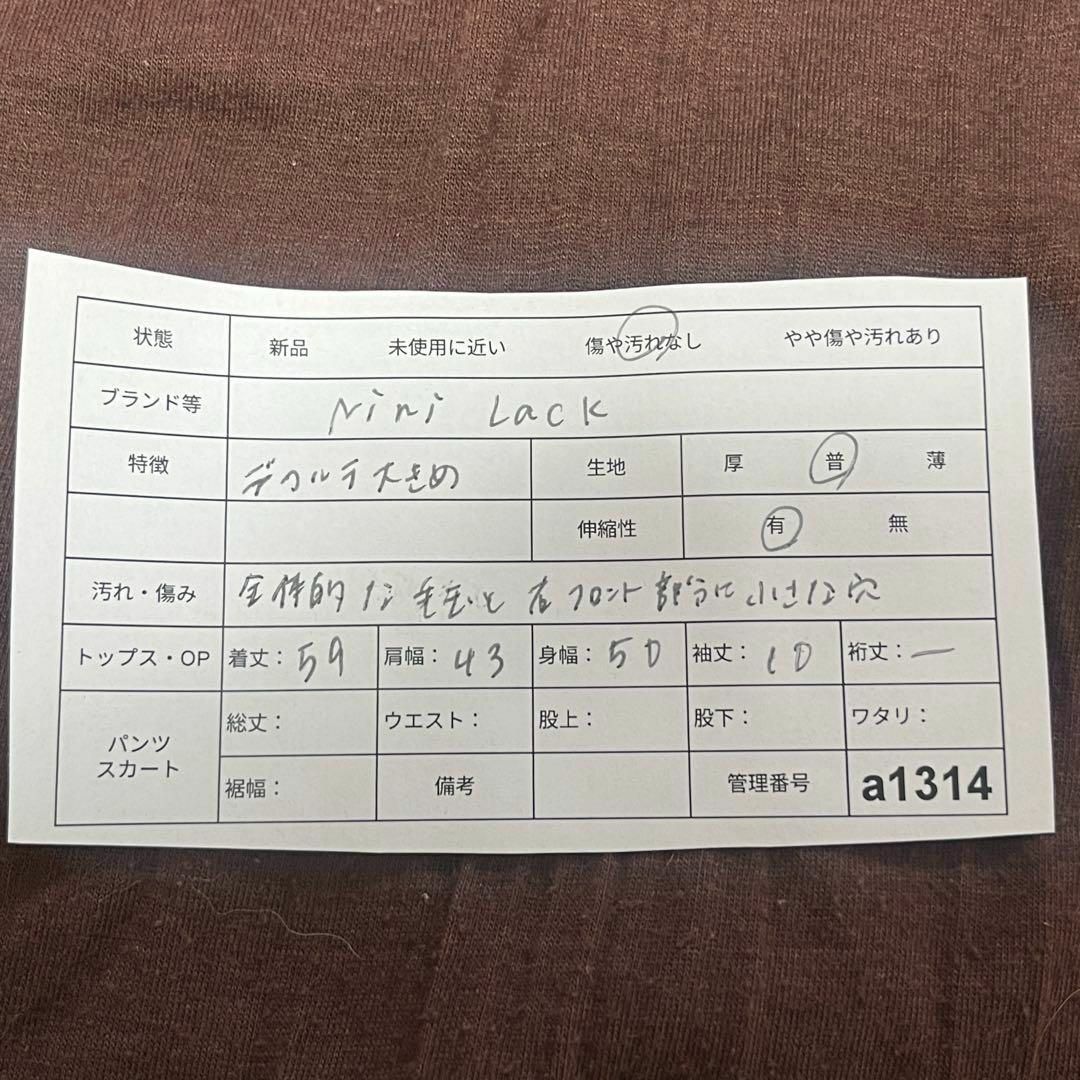 状態 新品 未使用に近い 傷や汚れなし やや傷や汚れあり
ブランド等 Nini Lack
特徴 デコルテ大きめ 生地 厚 普 薄
伸縮性 有 無
汚れ・傷み 全体的な毛玉と右フロント部分に小さな穴
トップス・OP 着丈：59 肩幅：43 身幅：50 袖丈：10 裄丈：ー
パンツ スカート 総丈： ウエスト： 股上： 股下： ワタリ：
裾幅： 備考 管理番号 a1314